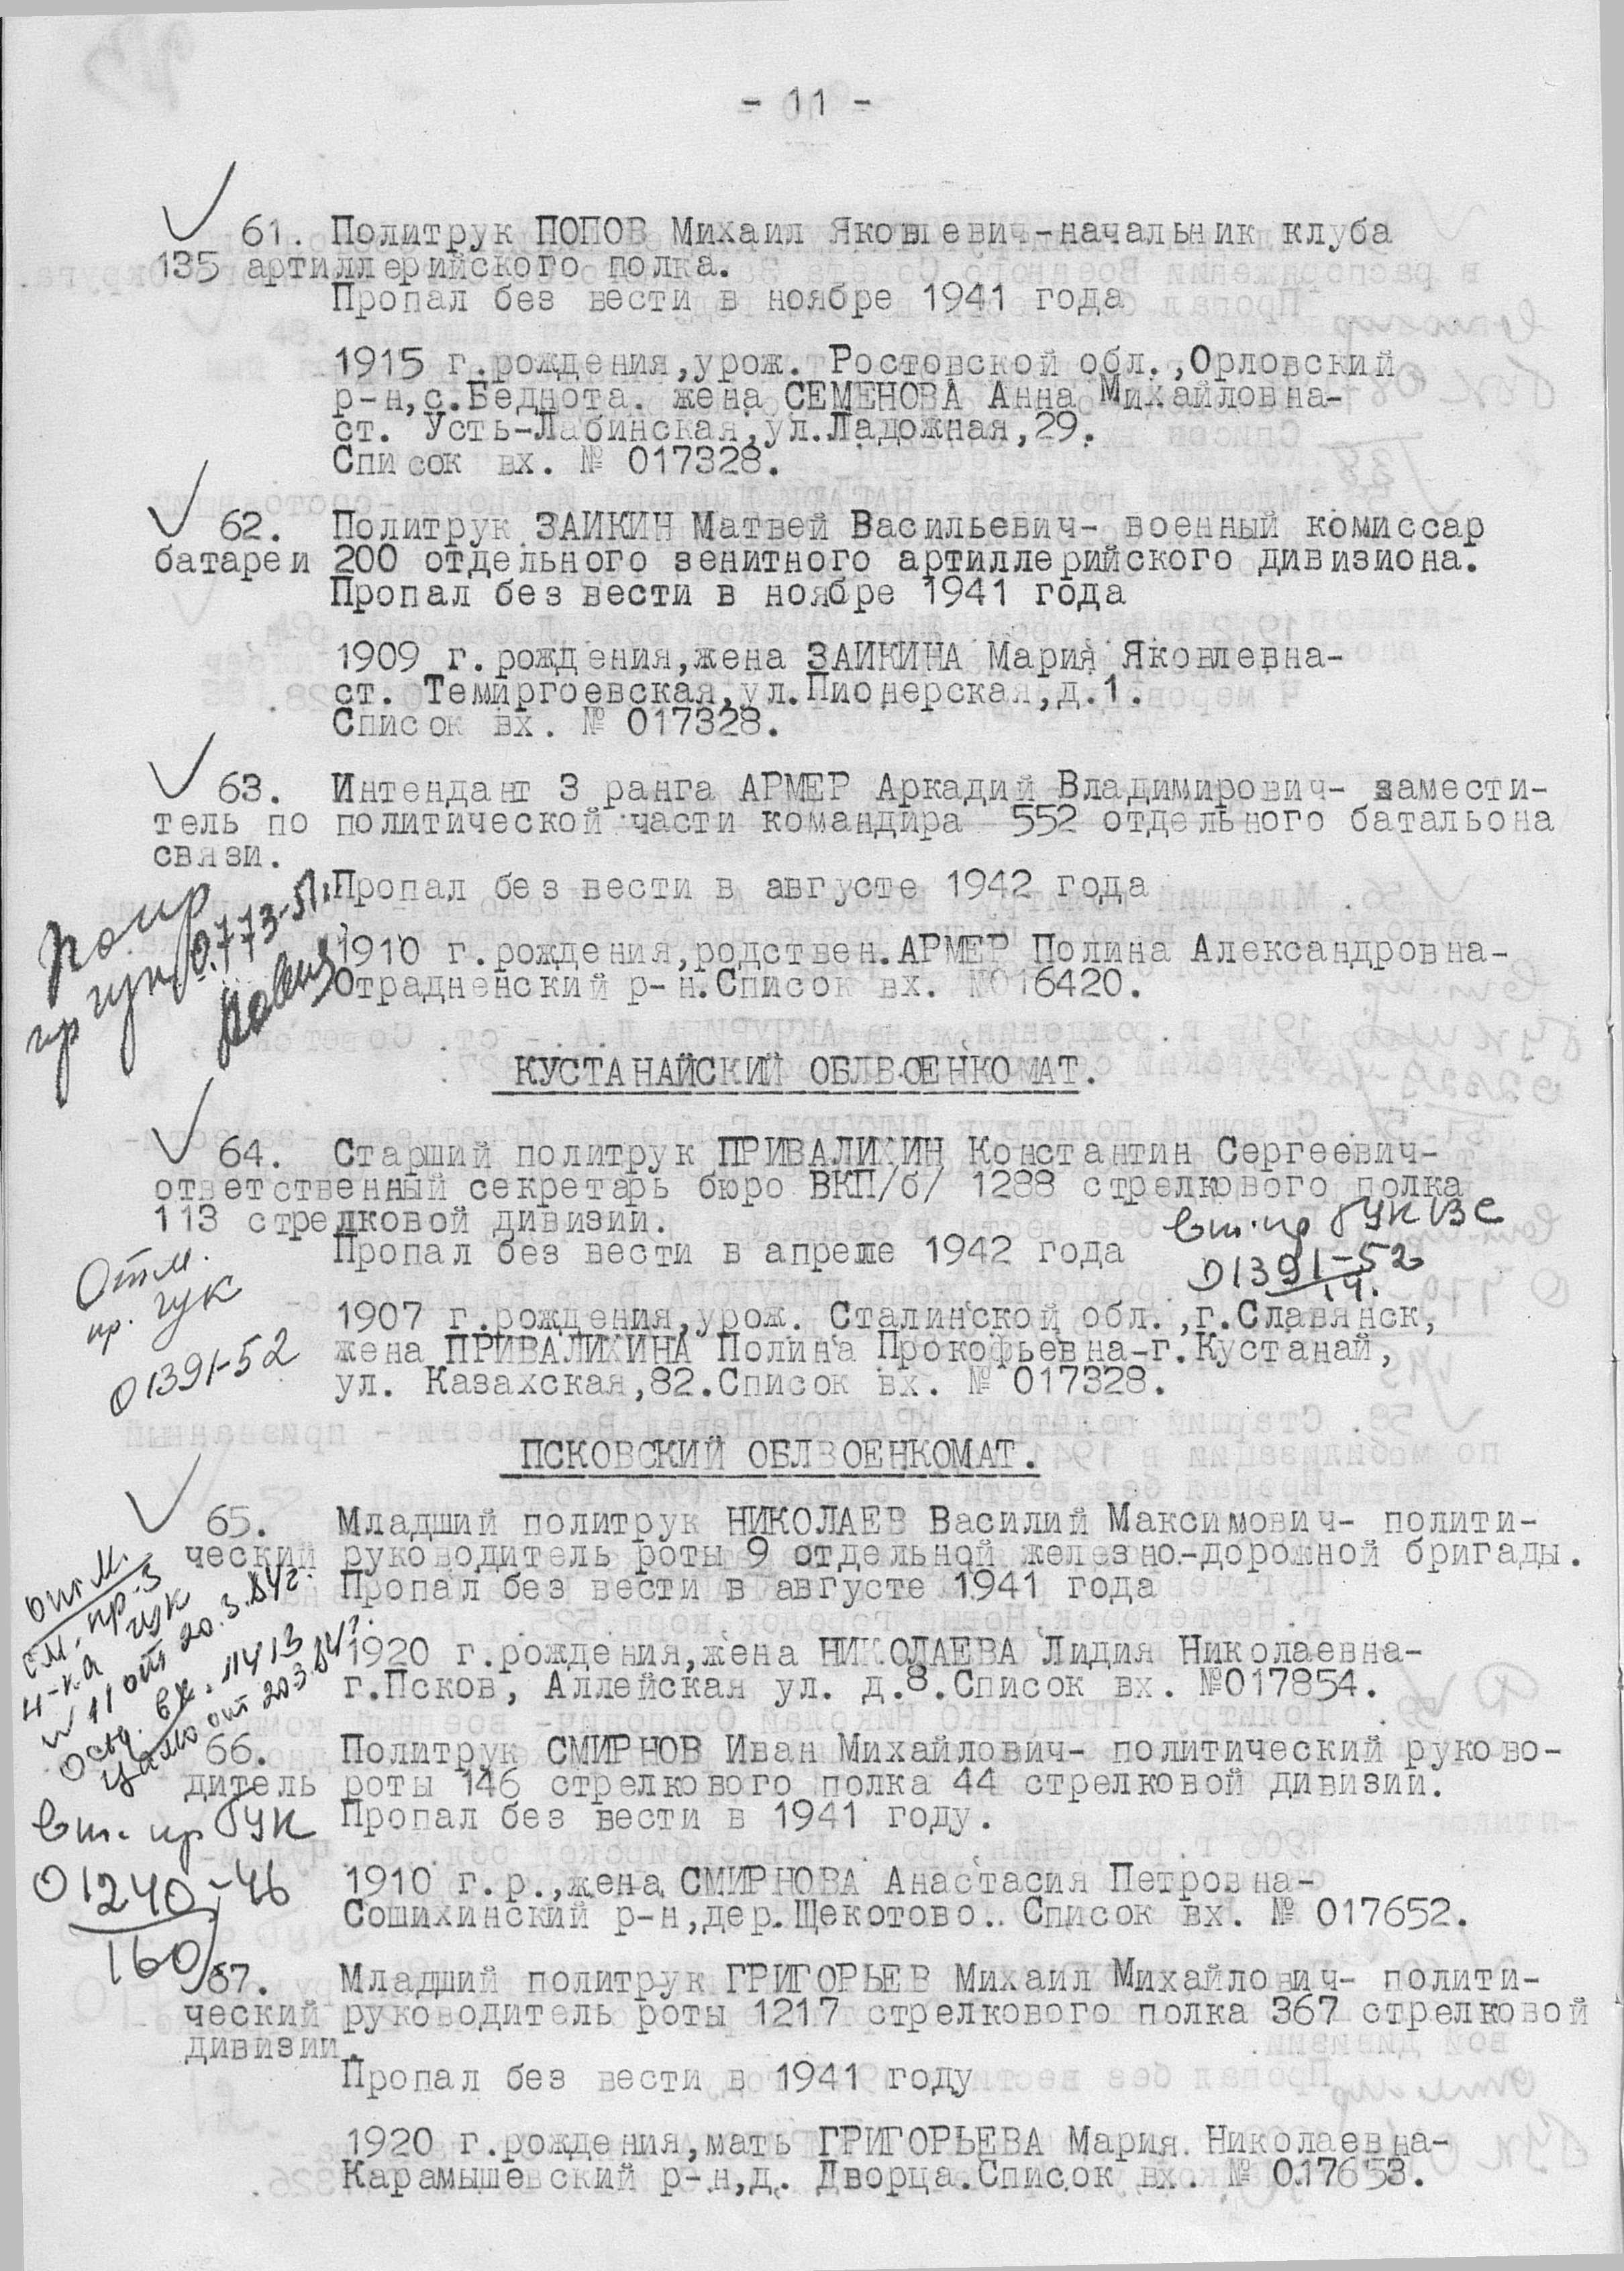 - 11 -
61. Политрук ПОПОВ Михаил Яковлевич-начальник клуба
135 артиллерийского полка.
Пропал без вести в ноябре 1941 года
1915 г.рождения,урож. Ростовской обл.,Орловский
р-н,с.Беднота. жена СЕМЕНОВА Анна Михайловна-
ст. Усть-Лабинская,ул.Ладожная,29.
Список вх. № 017328.
62. Политрук ЗАИКИН Матвей Васильевич- военный комиссар
батареи 200 отдельного зенитного артиллерийского дивизиона.
Пропал без вести в ноябре 1941 года
1909 г.рождения,жена ЗАИКИНА Мария Яковлевна-
ст. Темиргоевская,ул.Пионерская,д.1.
Список вх. № 017328.
63. Интендант 3 ранга АРМЕР Аркадий Владимирович- замести-
тель по политической части командира 552 отдельного батальона
связи.
Пропал без вести в августе 1942 года
1910 г.рождения,родствен.АРМЕР Полина Александровна-
Отрадненский р-н.Список вх. №016420.
пр гук 0773-51г.
КУСТАНАЙСКИЙ ОБЛВОЕНКОМАТ.
64. Старший политрук ПРИВАЛИХИН Константин Сергеевич-
ответственный секретарь бюро ВКП/б/ 1288 стрелкового полка
113 стрелковой дивизии.
Пропал без вести в апреле 1942 года
вт. пр ГУК ВС
01391-52
Отм.
пр. гук
01391-52
1907 г.рождения,урож. Сталинской обл.,г.Славянск,
жена ПРИВАЛИХИНА Полина Прокофьевна-г.Кустанай,
ул. Казахская,82.Список вх. № 017328.
ПСКОВСКИЙ ОБЛВОЕНКОМАТ.
65. Младший политрук НИКОЛАЕВ Василий Максимович- полити-
ческий руководитель роты 9 отдельной железно-дорожной бригады.
Пропал без вести в августе 1941 года
отм.
см. пр-з
н-ка гук
№ 11 от 20.3.84г.
осв. вх. 11413
ЦАМО от 20.3.84г.
1920 г.рождения,жена НИКОЛАЕВА Лидия Николаевна-
г.Псков, Аллейская ул. д.8.Список вх. №017854.
66. Политрук СМИРНОВ Иван Михайлович- политический руково-
дитель роты 146 стрелкового полка 44 стрелковой дивизии.
Пропал без вести в 1941 году.
вт. пр ГУК
01240-46
160
1910 г.р.,жена СМИРНОВА Анастасия Петровна-
Сошихинский р-н,дер.Щекотово.. Список вх. № 017652.
67. Младший политрук ГРИГОРЬЕВ Михаил Михайлович- полити-
ческий руководитель роты 1217 стрелкового полка 367 стрелковой
дивизии.
Пропал без вести в 1941 году
1920 г.рождения,мать ГРИГОРЬЕВА Мария Николаевна-
Карамышевский р-н,д. Дворца.Список вх. № 017653.